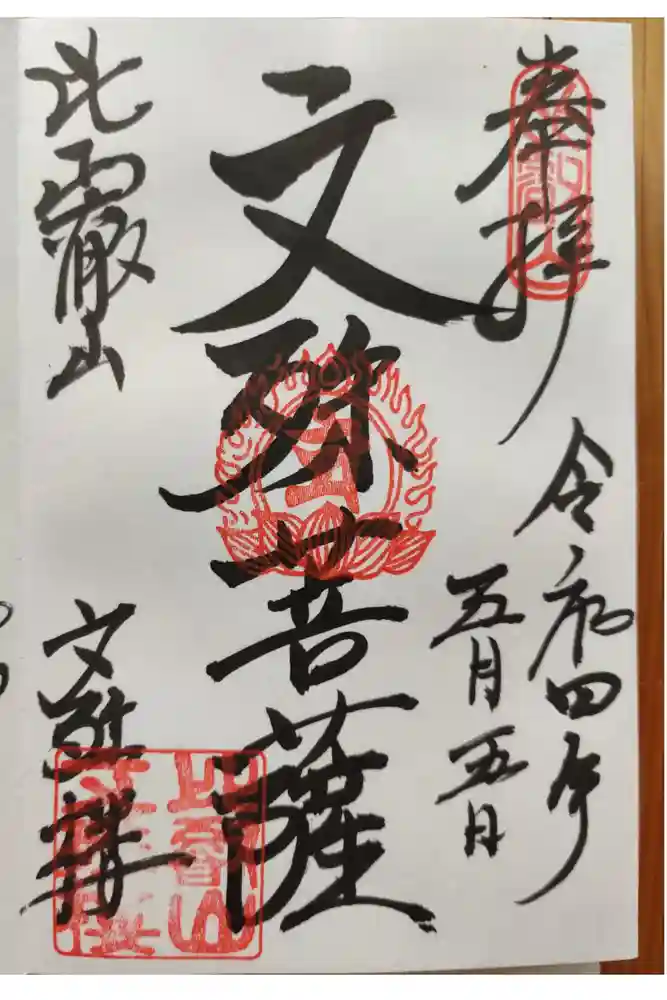 奉拝
令和四年
五月五日
文殊菩薩
比叡山
文殊楼
比叡山